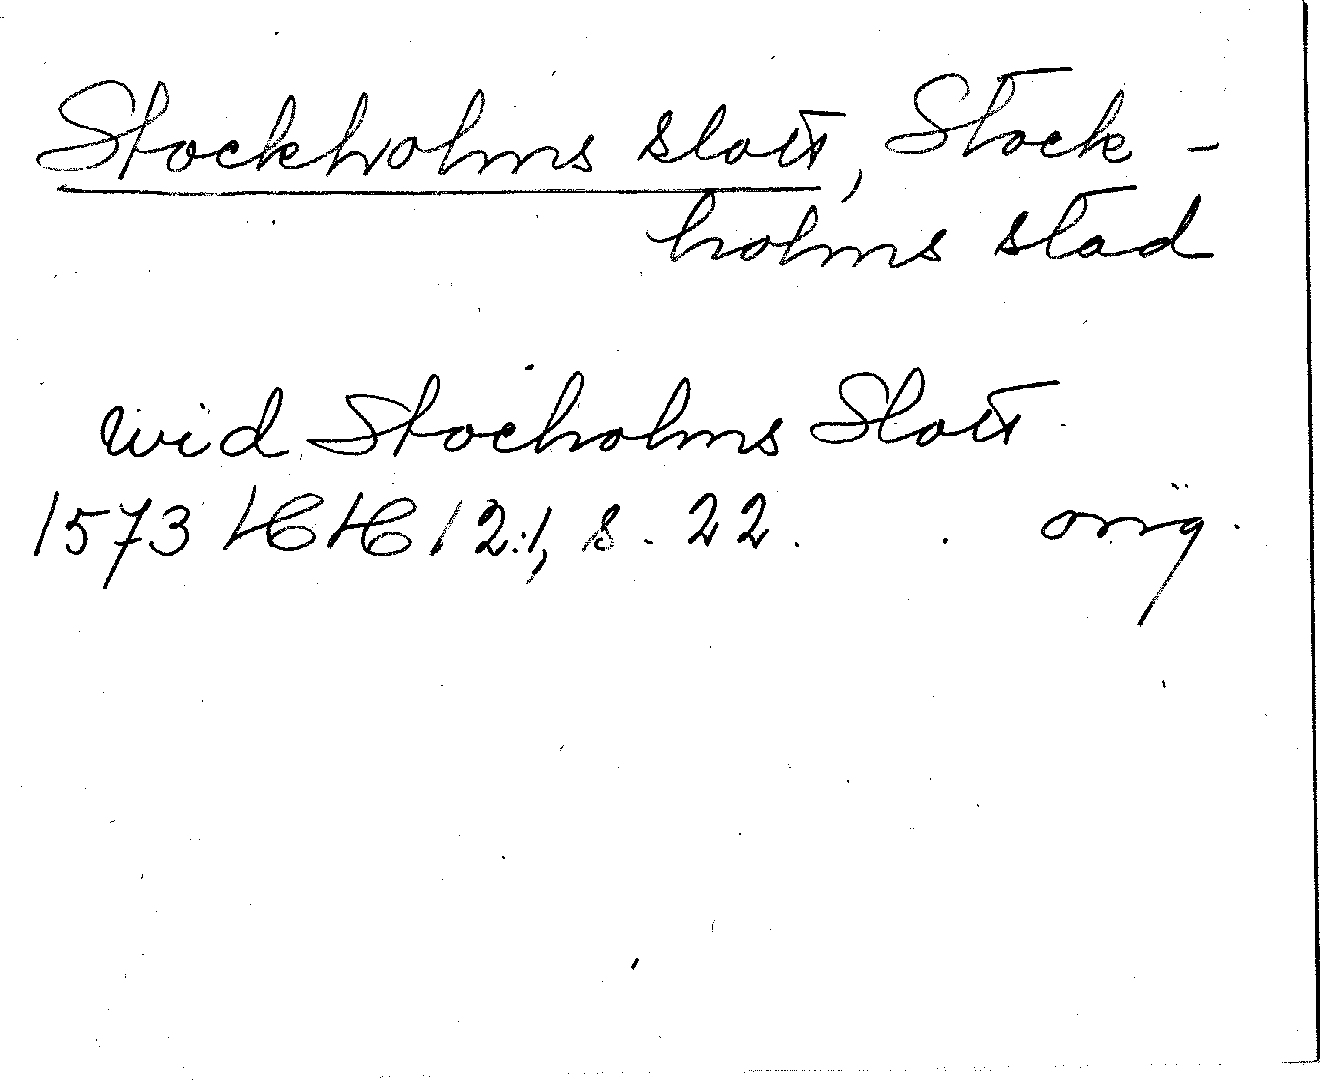 Stockholms slott, Stock-
holms stad
wid Stocholms Slott
1573 HH 12:1, s. 22. orig.